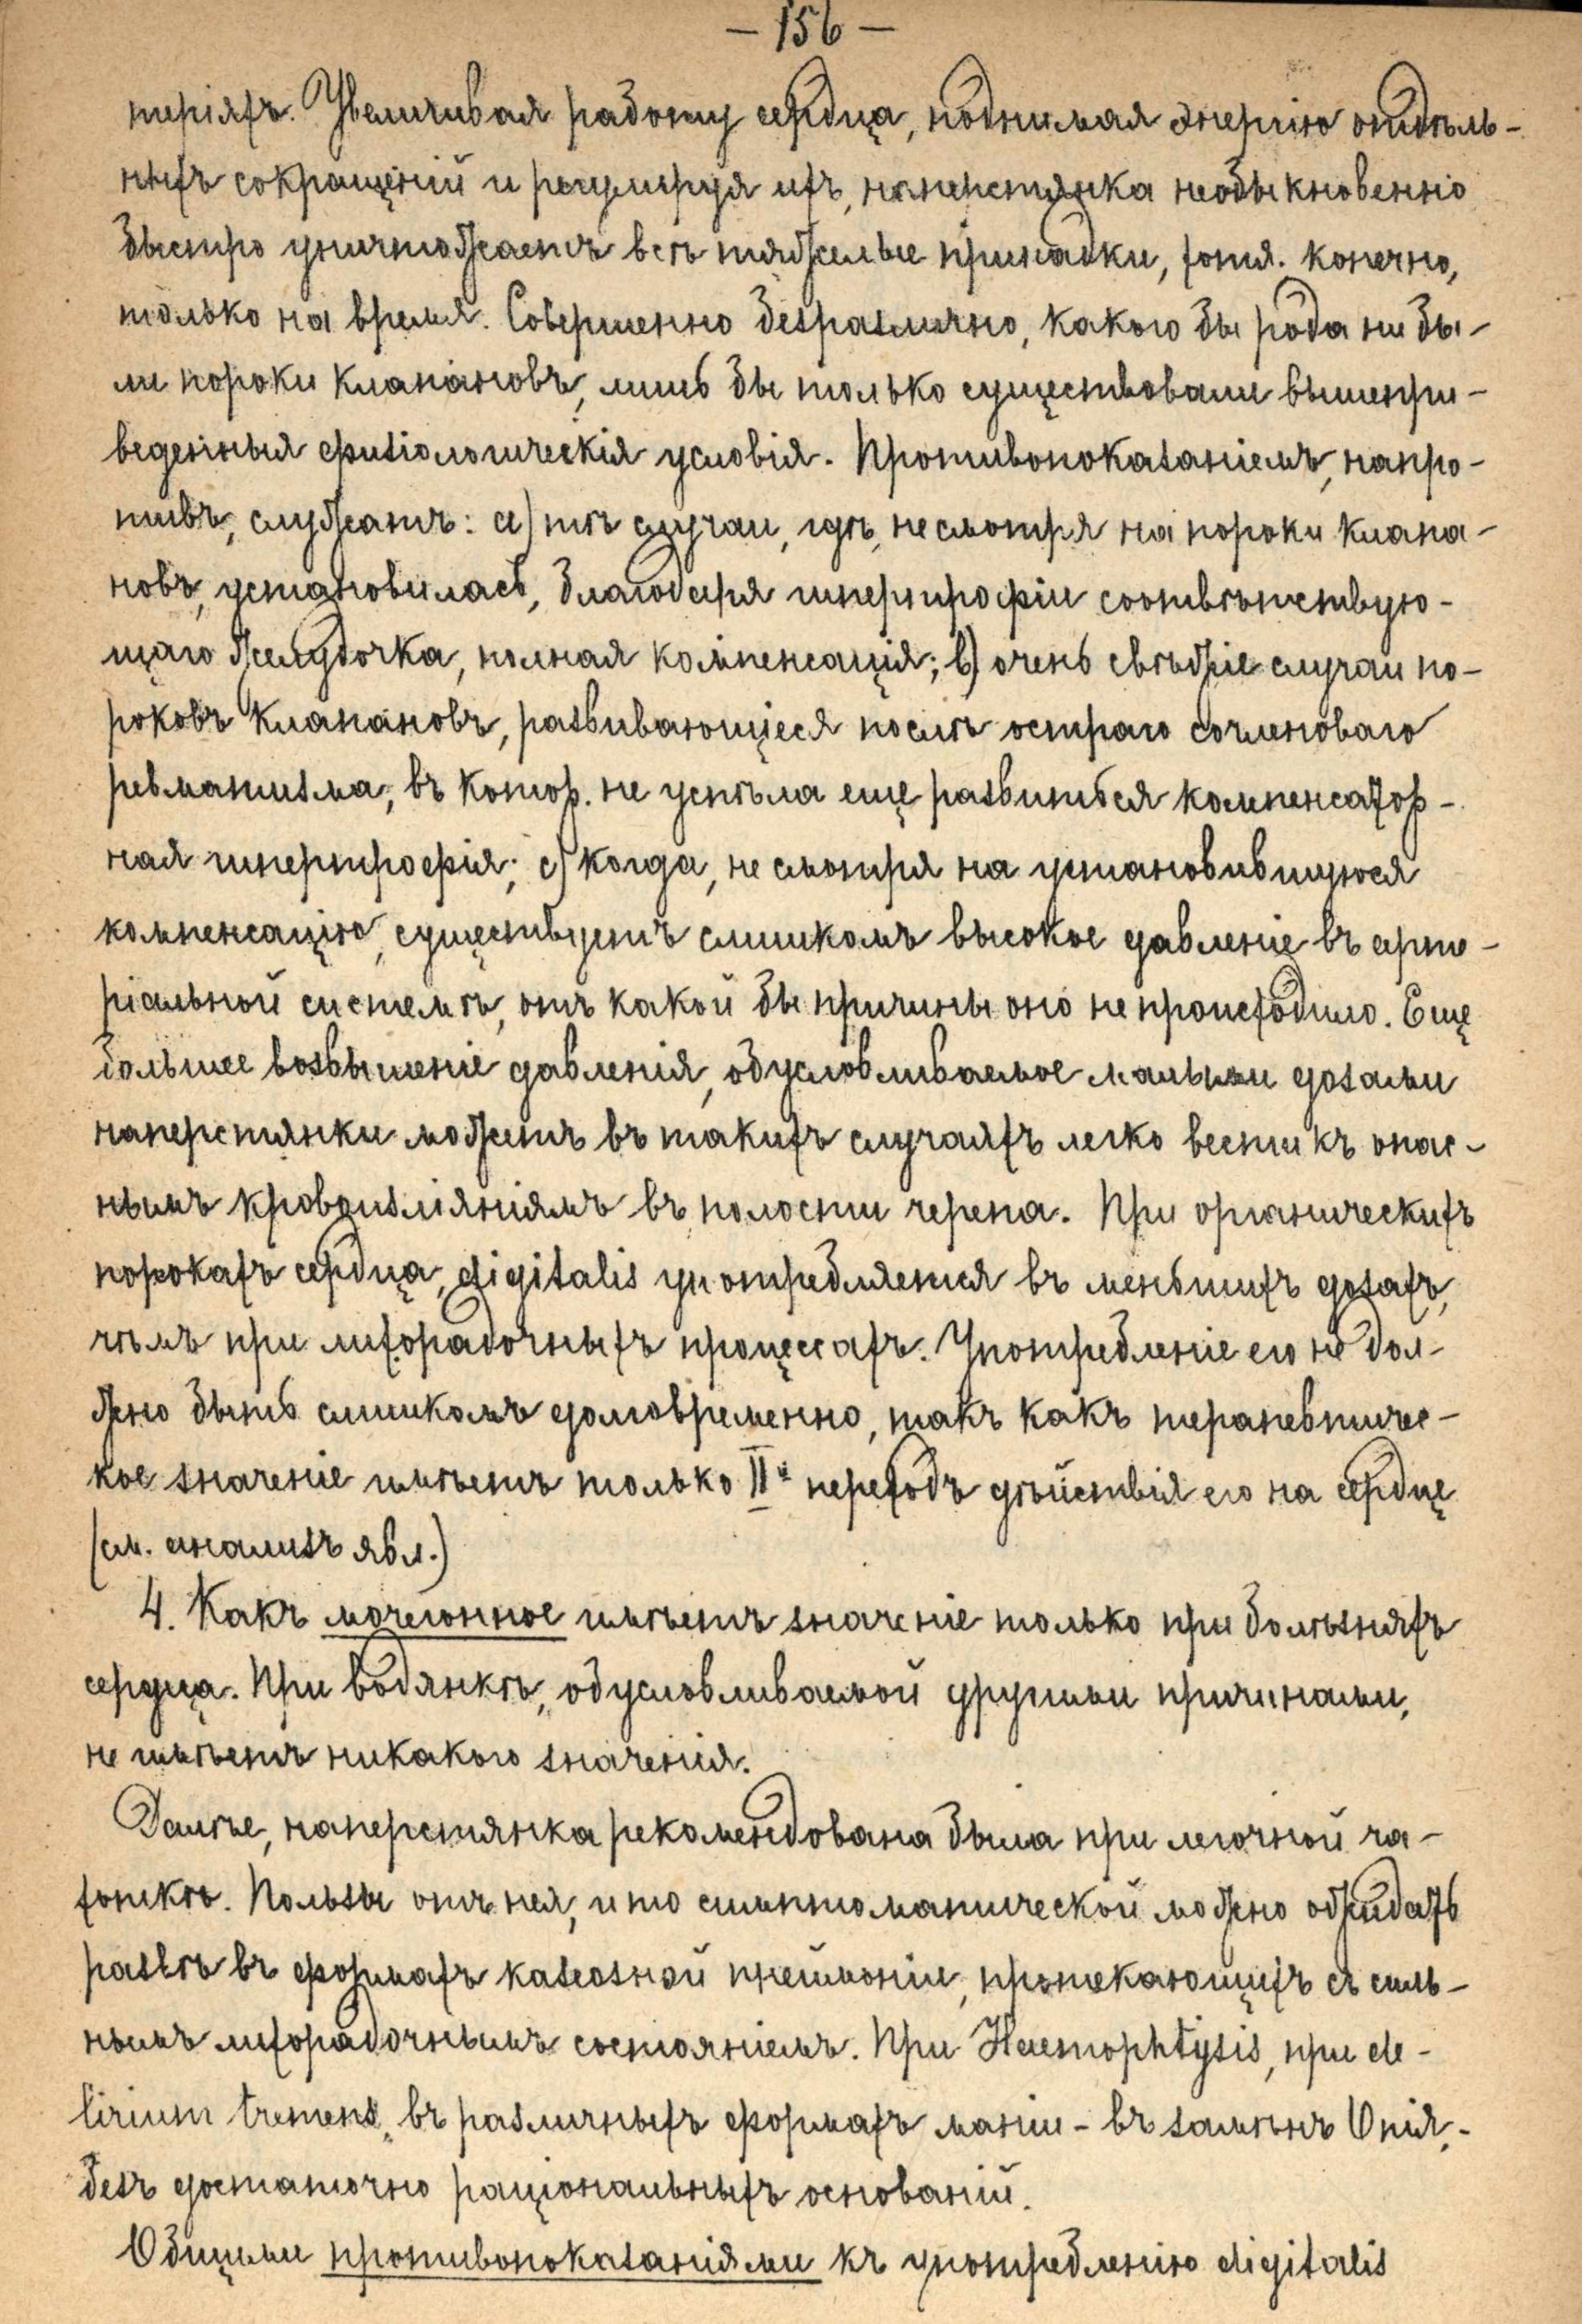 — 156 —
теріяхъ. Увеличивая работу сердца, поднимая энергію отдѣль-
ныхъ сокращеній и регулируя ихъ, наперстянка необыкновенно
быстро уничтожаетъ всѣ тяжелые припадки, хотя, конечно,
только на время. Совершенно безразлично, какого бы рода ни бы-
ли пороки клапановъ, лишь бы только существовали вышепри-
веденныя физіологическія условія. Противопоказаніемъ, напро-
тивъ, служатъ: a) тѣ случаи, гдѣ, не смотря на пороки клапа-
новъ, установилась, благодаря гипертрофіи соотвѣтствую-
щаго желудочка, полная компенсація; b) очень свѣжіе случаи по-
роковъ клапановъ, развивающіеся послѣ остраго сочленоваго
ревматизма, въ котор. не успѣла еще развиться компенсатор-
ная гипертрофія; c) когда, не смотря на установившуюся
компенсацію, существуетъ слишкомъ высокое давленіе въ арте-
ріальной системѣ, отъ какой бы причины оно не происходило. Еще
большее возвышеніе давленія, обусловливаемое малыми дозами
наперстянки можетъ въ такихъ случаяхъ легко вести къ опас-
нымъ кровоизліяніямъ въ полости черепа. При органическихъ
порокахъ сердца, digitalis употребляется въ меньшихъ дозахъ,
чѣмъ при лихорадочныхъ процессахъ. Употребленіе его не дол-
жно быть слишкомъ долговременно, такъ какъ терапевтичес-
кое значеніе имѣетъ только IIй переходъ дѣйствія его на сердце
(см. анализъ явл.)
4. Какъ мочегонное имѣетъ значеніе только при болѣзняхъ
сердца. При водянкѣ, обусловливаемой другими причинами,
не имѣетъ никакого значенія.
Далѣе, наперстянка рекомендована была при легочной ча-
хоткѣ. Пользы отъ нея, и то симптоматической можно ожидать
развѣ въ формахъ казеозной пнеймоніи, протекающихъ съ силь-
нымъ лихорадочнымъ состояніемъ. При Haemophtysis, при de-
lirium tremens, въ различныхъ формахъ маніи - въ замѣнъ Опія,-
безъ достаточно раціональныхъ основаній.
Общими противопоказаніями къ употребленію digitalis